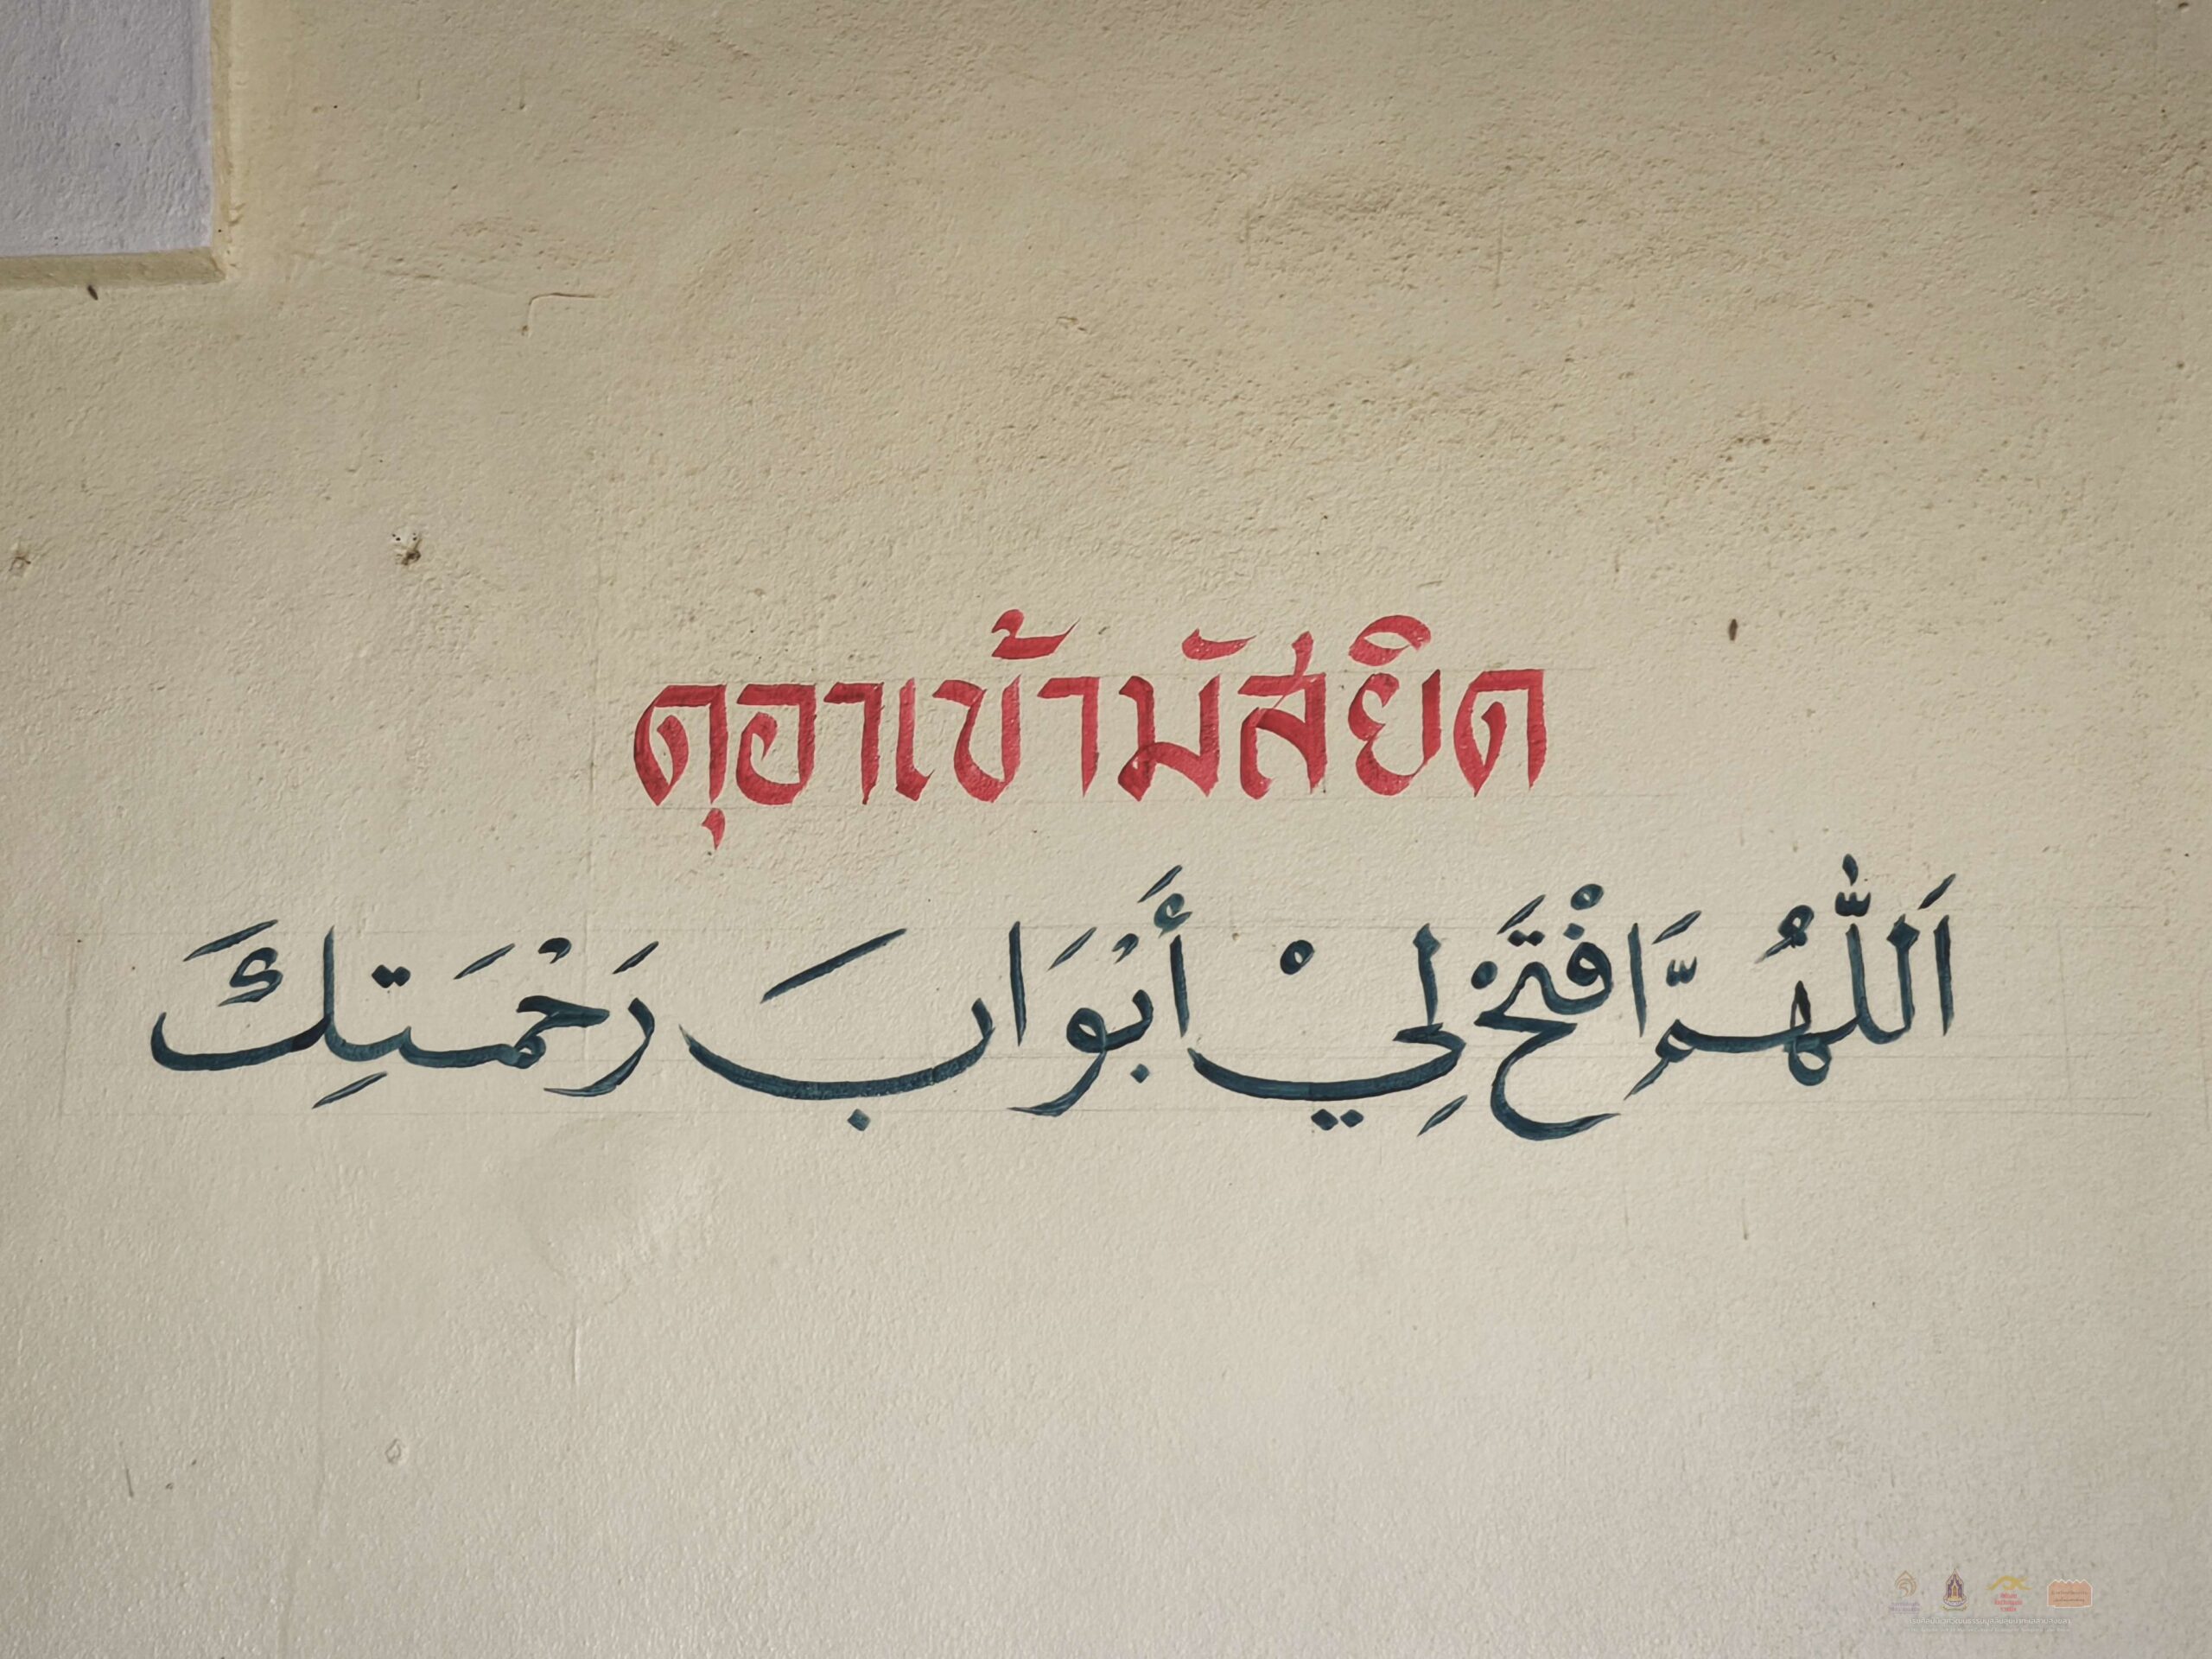 ดุอาเข้ามัสยิด
اَللّٰهُمَّ افْتَحْ لِيْ أَبْوَابَ رَحْمَتِكَ